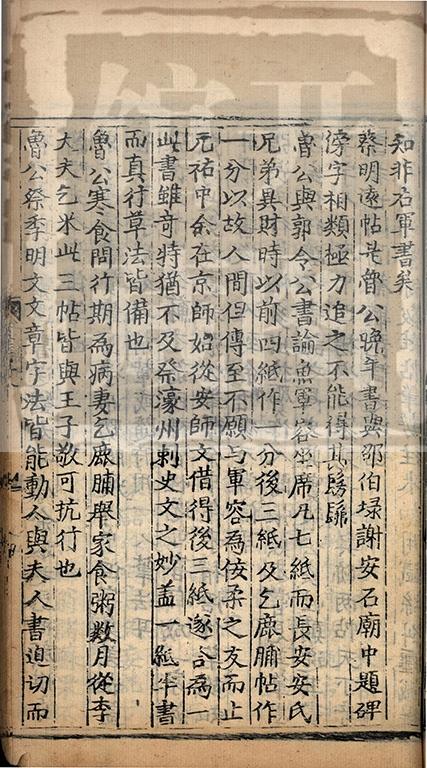 知非右軍書矣
蔡明遠帖是魯公晚年書與邵伯埭謝安石廟中題碑
滂字相類極力追之不能得其髣髴
魯公與郭令公書論魚軍容坐席凡七紙而長安安氏
兄弟異財時以前四紙作一分後三紙及乞鹿脯帖作
一分以故人間但傳至不願与軍容為佞柔之友而止
元祐中余在京師始從安師文借得後三紙遂合為一
此書雖奇特猶不及祭濠州刺史文之妙盖一紙半書
而真行草法皆備也
魯公寒食問行期為病妻乞鹿脯舉家食粥數月從李
大夫乞米此三帖皆與王子敬可抗行也
魯公祭季明文文章字法皆能動人與夫人書迫切而